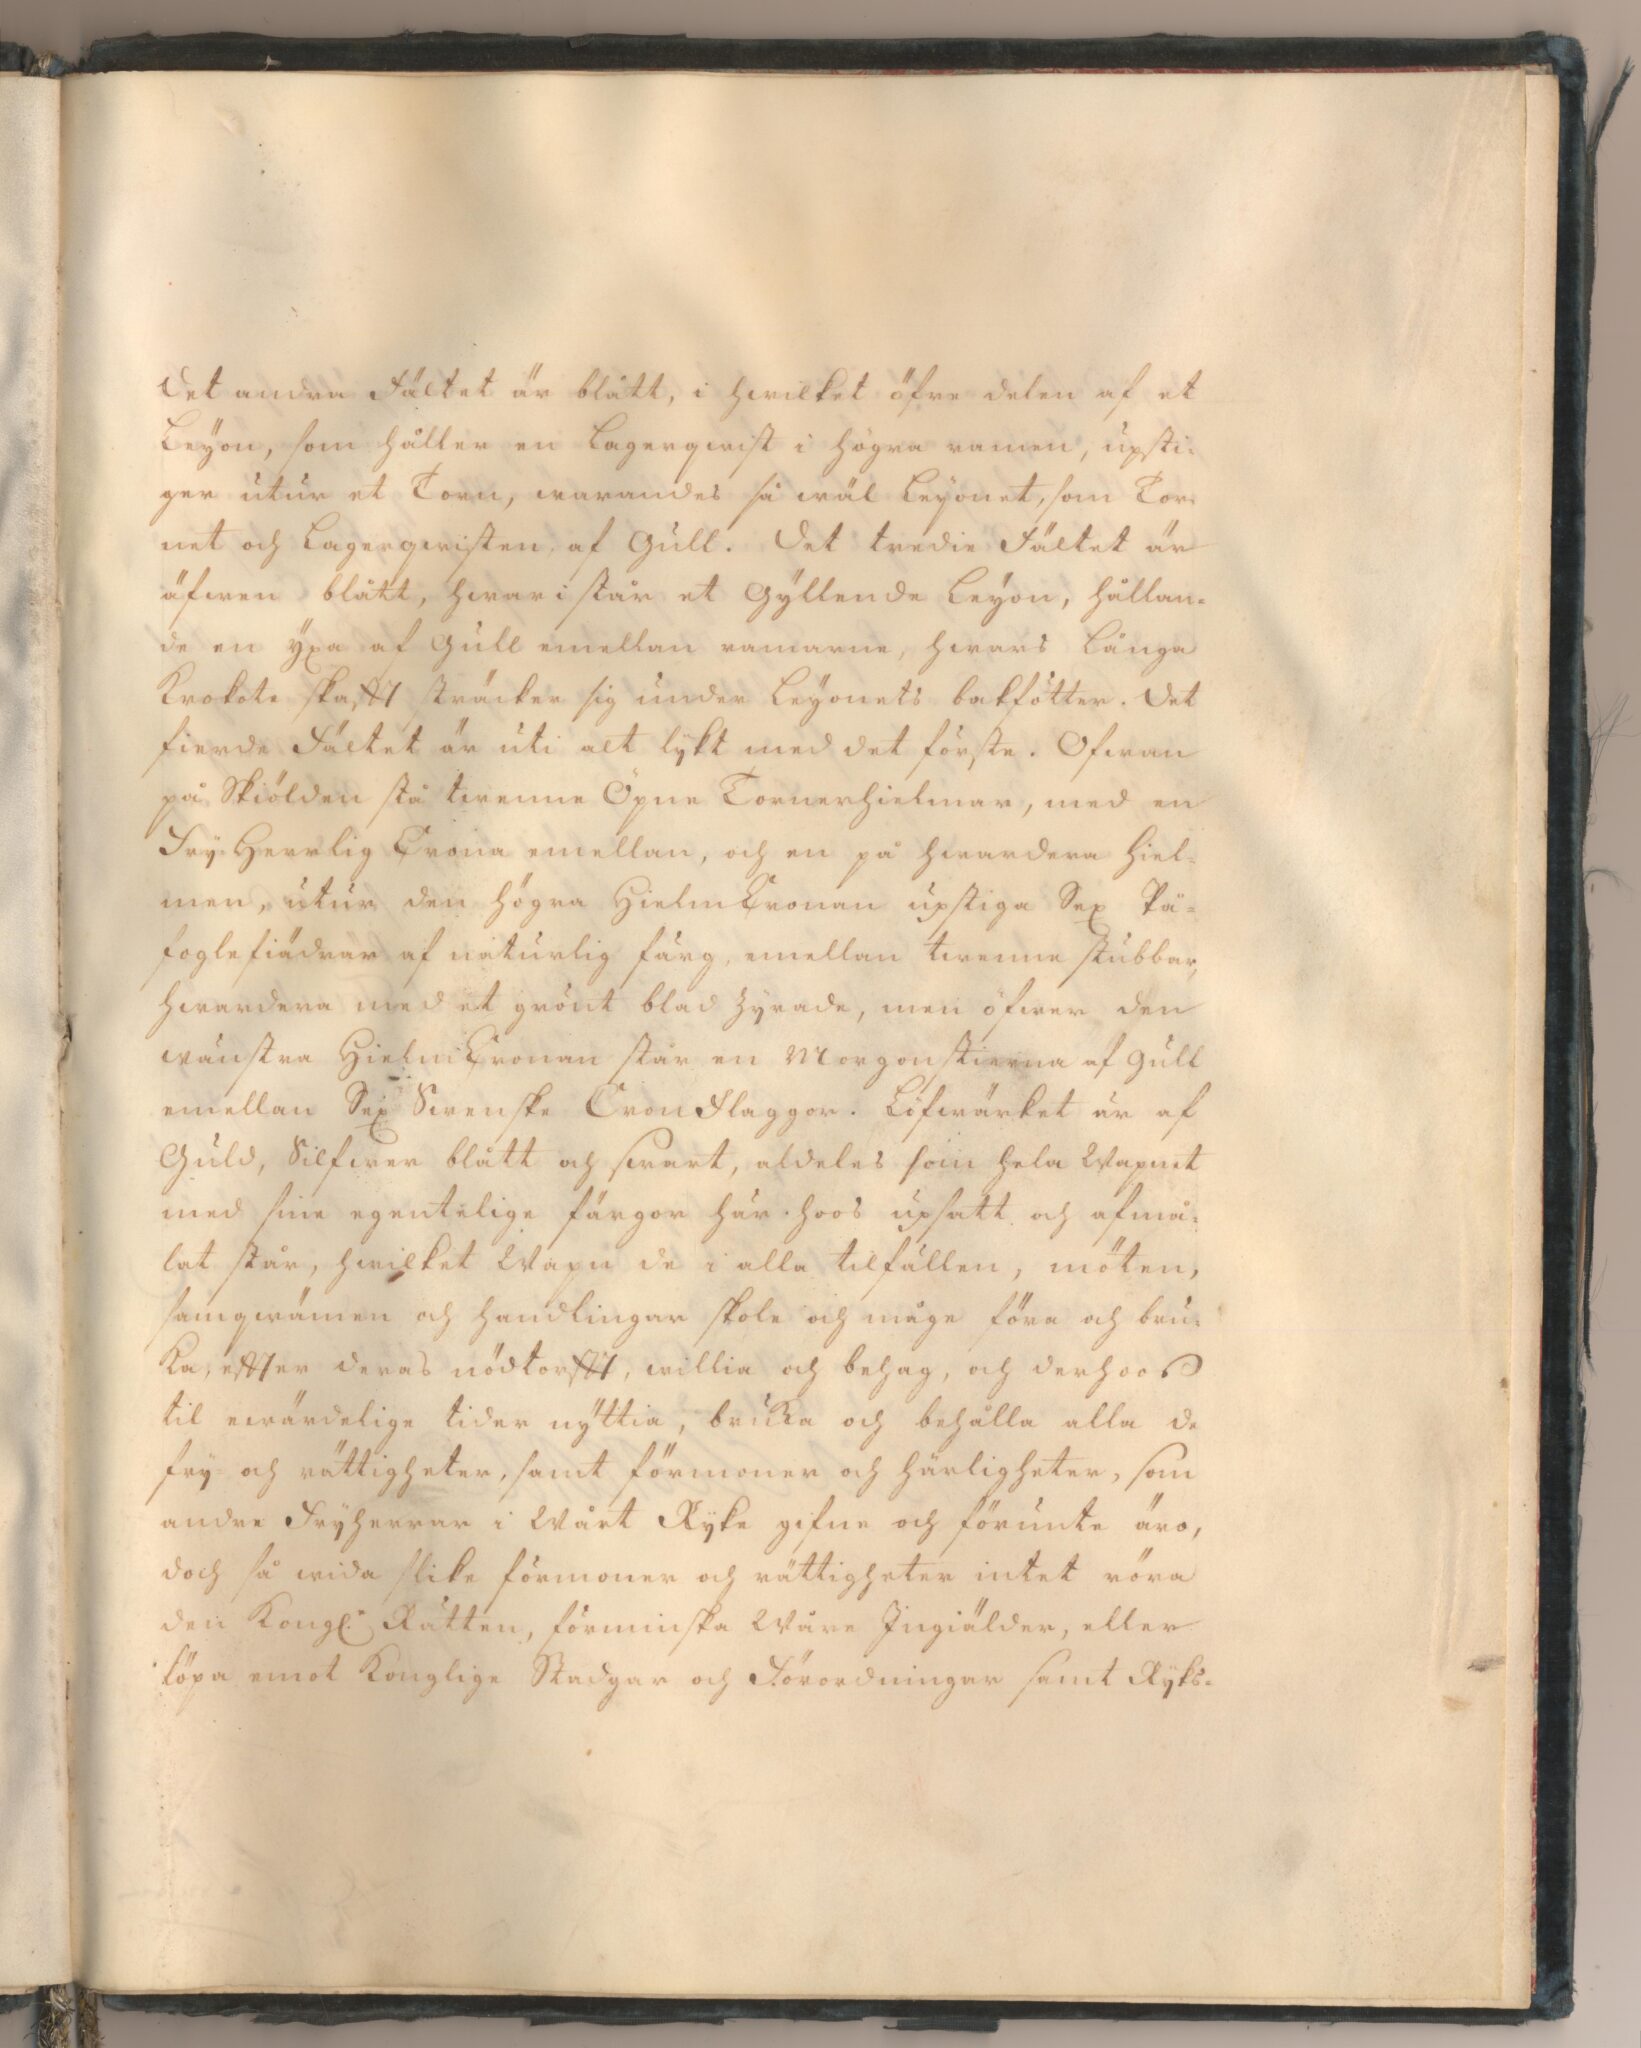 Det andra Fältet är blått, i hwilket öfre delen af et
Leÿon, som håller en Lagerqwist i högra ramen, upsti-
ger utur et Torn, warandes så wäl Leÿonet, som Tor-
net och Lagerqwisten, af Gull. Det tredie Fältet är
äfwen blått, hwari står et Gÿllende Leÿon, hållan-
de en ÿxa af Gull emellan ramarne, hwars Långa
Krokote skafft sträcker sig under Leÿonets bakfötter. Det
fierde Fältet är uti alt lÿkt med det förste. Ofwan
på Skiölden stå twenne Öpne Tornerhielmar, med en
Frÿ-Herrlig Crona emellan, och en på hwardera hiel-
men, utur den högra HielmCronan upstiga Sex På-
foglefiädrar af naturlig färg, emellan twenne stubbar,
hwardera med et grönt blad zÿrade, men öfwer den
wänstra HielmCronan står en Morgonstierna af Gull
emellan Sex Swenske CronFlaggor. Löfwärket är af
Guld, Silfwer blått och swart, aldeles som hela Wapnet
med sine egentelige färgor här-hoos upsatt och afmå-
lat står, hwilket Wapn de i alla tilfällen, möten,
samqwämen och handlingar skole och måge föra och bru-
ka, effter deras nödtorfft, willia och behag, och derhoos
til ewärdelige tider nÿttia, bruka och behålla alla de
frÿ- och rättigheter, samt förmoner och härligheter, som
andre Frÿherrar i Wårt Rÿke gifne och förunte äro,
doch så wida slike förmoner och rättigheter intet röra
den Kongl. Rätten, förminska Wåre Ingiälder, eller
löpa emot Konglige Stadgar och Förordningar samt Rÿks-